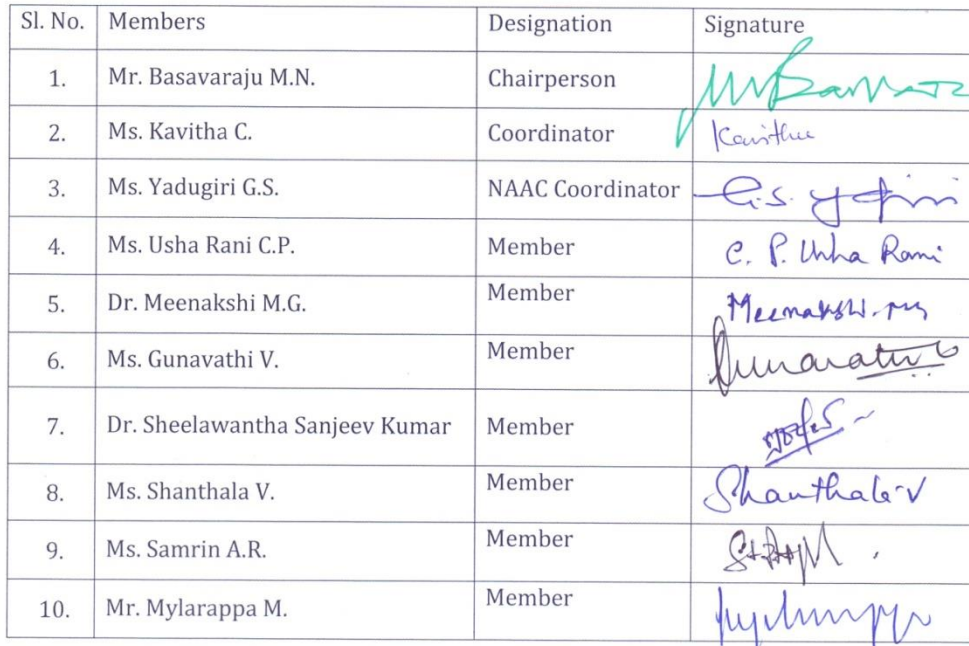 Sl. No. Members Designation Signature
1. Mr. Basavaraju M.N. Chairperson
2. Ms. Kavitha C. Coordinator Kavitha
3. Ms. Yadugiri G.S. NAAC Coordinator G.S.
4. Ms. Usha Rani C.P. Member C. P. Usha Rani
5. Dr. Meenakshi M.G. Member Meenakshi. MG
6. Ms. Gunavathi V. Member Gunavathi V
7. Dr. Sheelawantha Sanjeev Kumar Member
8. Ms. Shanthala V. Member Shanthala. V
9. Ms. Samrin A.R. Member
10. Mr. Mylarappa M. Member